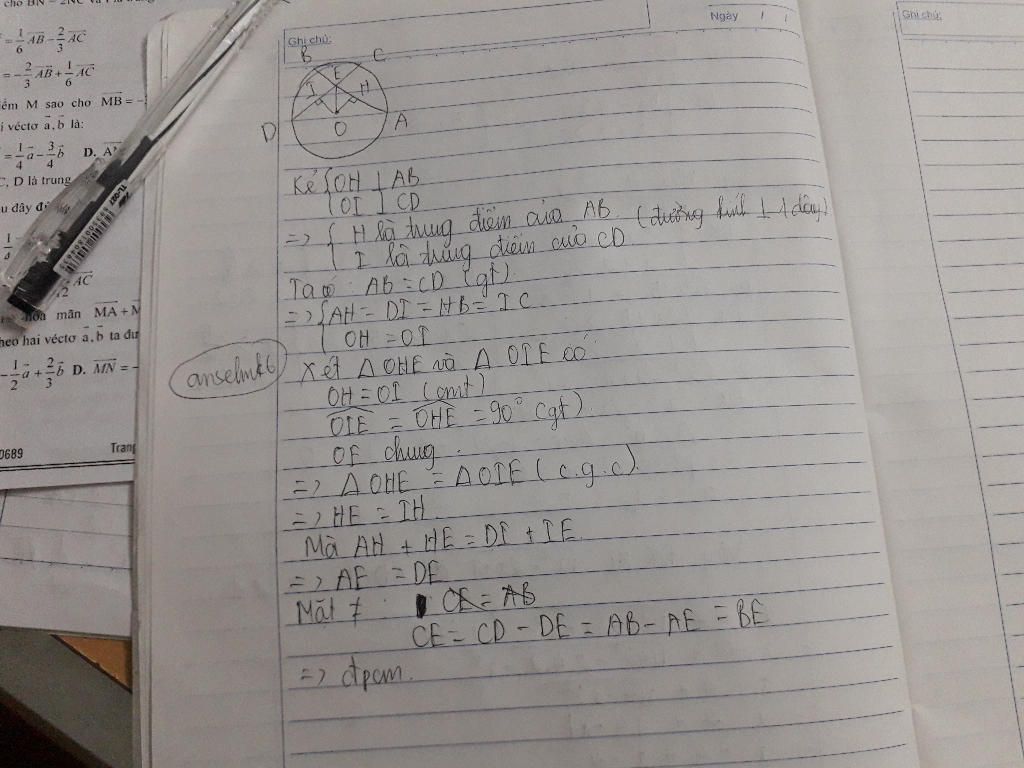 cho BN = 2NC và
= 1/6 AB - 2/3 AC
= -2/3 AB + 1/6 AC
iểm M sao cho MB = -
i véctơ a, b là:
= 1/4 a - 3/4 b D.
C, D là trung
u đây đ
AC
12
mãn MA + M
heo hai véctơ a, b ta đư
-1/2 a + 2/3 b D. MN = -
0689 Trang
Ngày / /
Ghi chú:
Ghi chú:
B C
E
I H
D O A
Kẻ { OH ⊥ AB
OI ⊥ CD
=> { H là trung điểm của AB. (đường kính ⊥ 1 dây)
I là trung điểm của CD
Ta có: AB = CD (gt)
=> { AH = DI = HB = IC
OH = OI
anselmk6
Xét Δ OHE và Δ OIE có
OH = OI (cmt)
OIE = OHE = 90° (gt)
OE chung
=> Δ OHE = Δ OIE (c.g.c)
=> HE = IH
Mà AH + HE = DI + IE
=> AE = DE
Mặt ≠ CE = AB
CE = CD - DE = AB - AE = BE
=> đpcm.